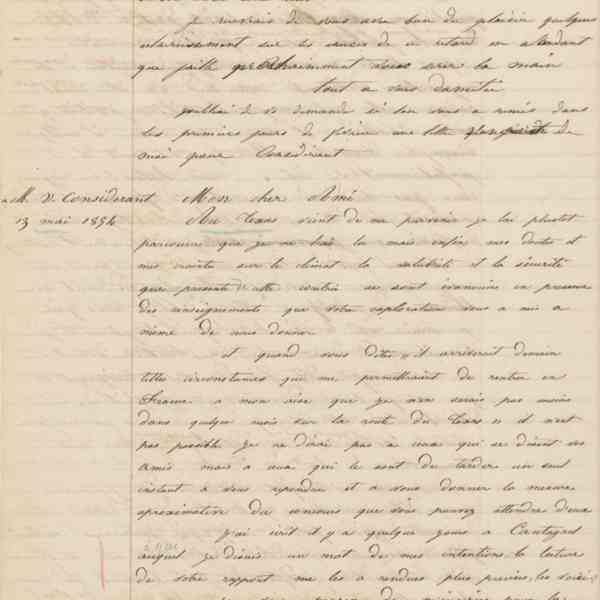 je voudrais de vous avoir bien du plaisir quelques
éclaircissement sur les causes de ce retard en attendant
que faille prochainement vous serrer la main
tout a vous d'amitié
j'oubliai de vs demander si l'on vous a remis dans
les premiers jours de février une lettre de
moi pour Considerant
M. V. Considerant
13 mai 1854
Mon cher Ami
Au Texas vient de me parvenir je l'ai plustot
parcourue que je ne l'ai lu mais enfin mes doutes et
mes craintes sur le climat la salubrité et la sécurité
que présente cette contrée se sont évanouies en presence
des renseignements que votre exploration vous a mis a
même de nous donner
et quand vous dites s'il arriverait demain
telles circonstances qui me permettraient de rentrer en
France a mon aise que je n'en serais pas moins
dans quelque mois sur la route du Texas il n'est
pas possible je ne dirai pas a ceux qui se disent vos
amis mais a ceux qui le sont de tarder un seul
instant a vous repondre et a vous donner la mesure
aproximative du concours que vous pouvez attendre d'eux
J'ai écrit il y a quelque jours a Cantagrel
auquel je disais un mot de mes intentions, la lecture
de votre rapport me les a rendues plus précises, les voici